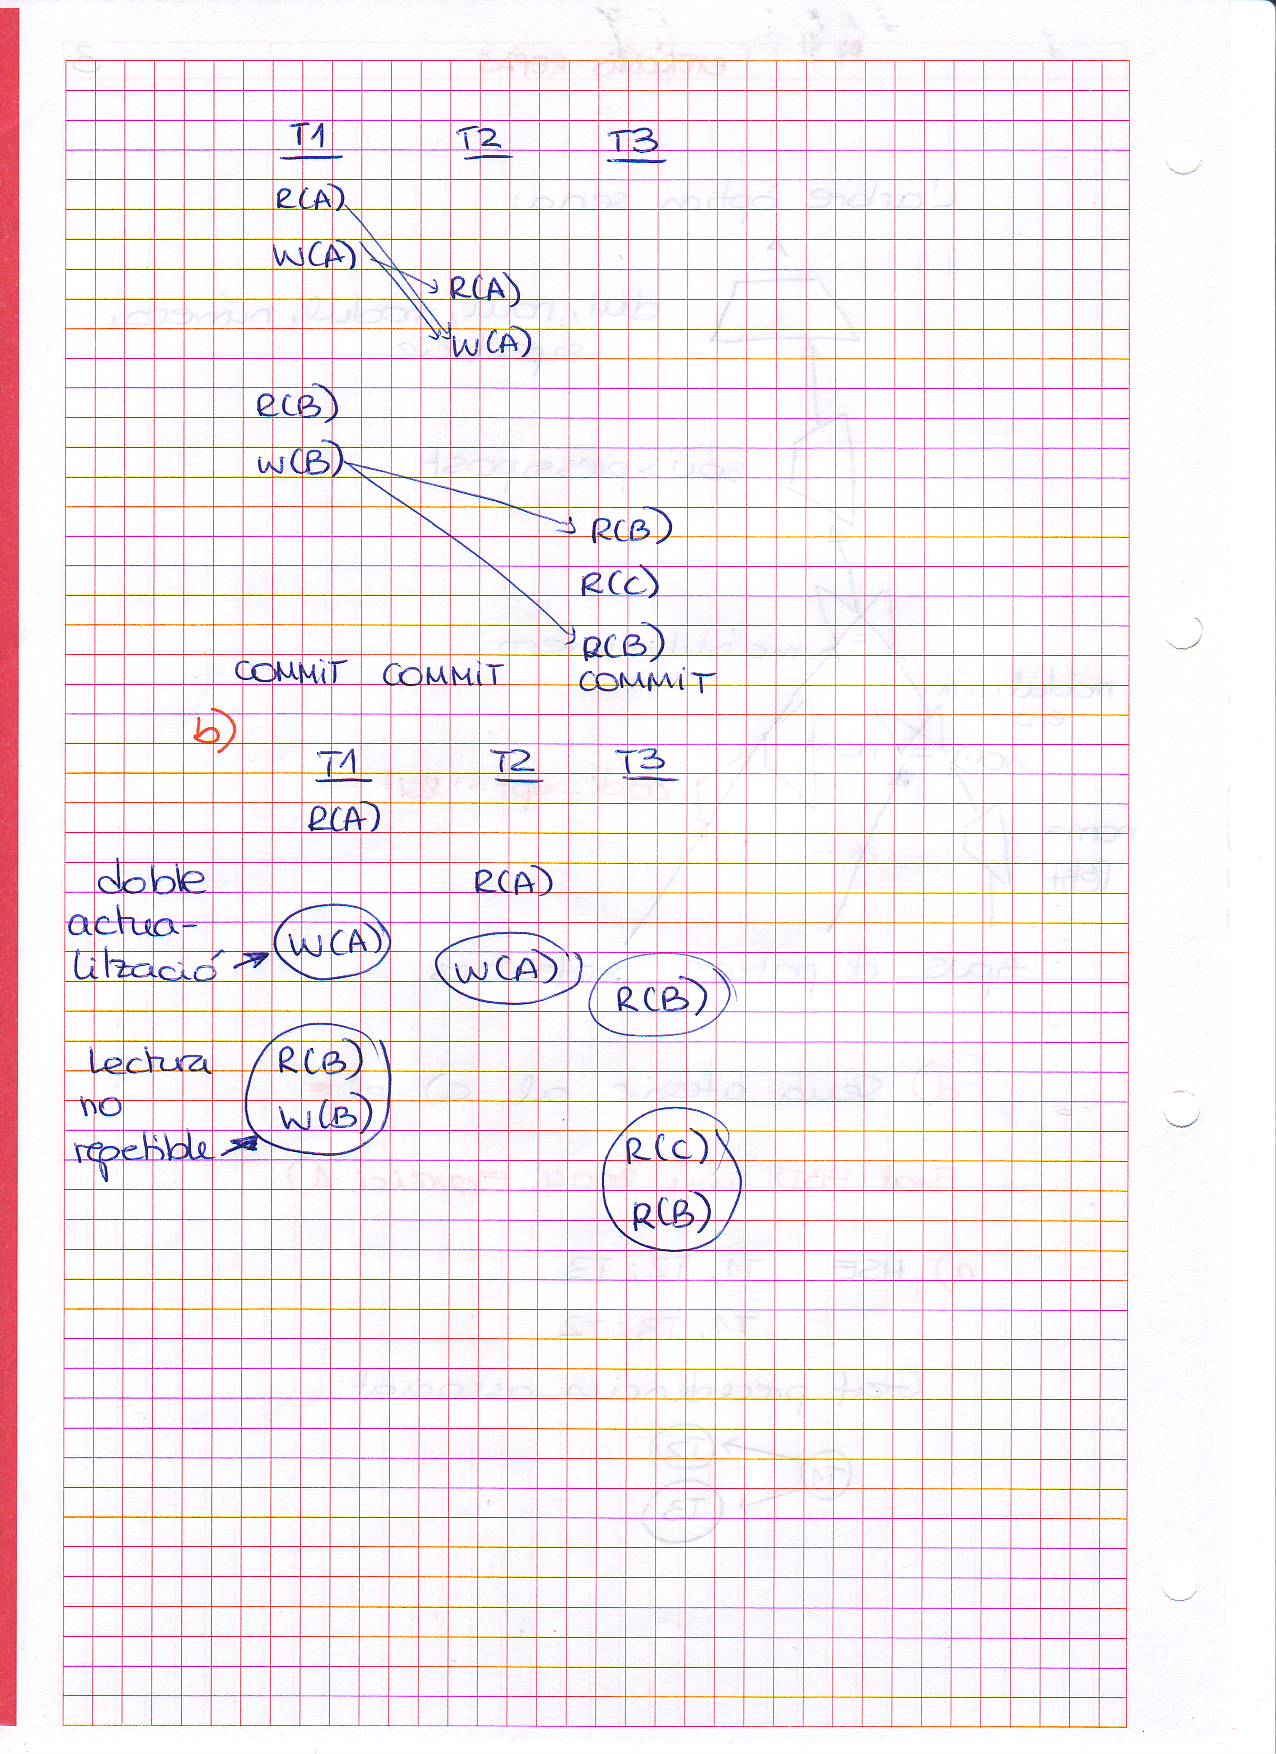 T1 T2 T3
R(A)
W(A)
R(A)
W(A)
R(B)
W(B)
R(B)
R(C)
R(B)
COMMIT COMMIT COMMIT
b)
T1 T2 T3
R(A)
doble R(A)
actua-
lització W(A) W(A)
R(B)
Lectura R(B)
no W(B)
repetible R(C)
R(B)